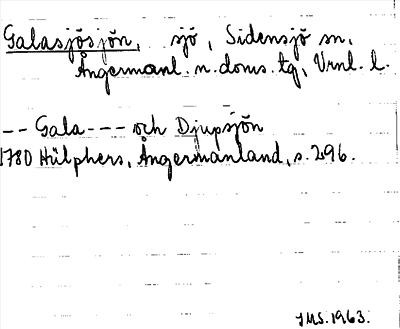 Galasjösjön, sjö, Sidensjö sn.
Ångermanl. n. doms. tg, Vrnl. l.
-- Gala --- och Djupsjön
1780 Hülphers, Ångermanland, s. 296.
JMS. 1963.